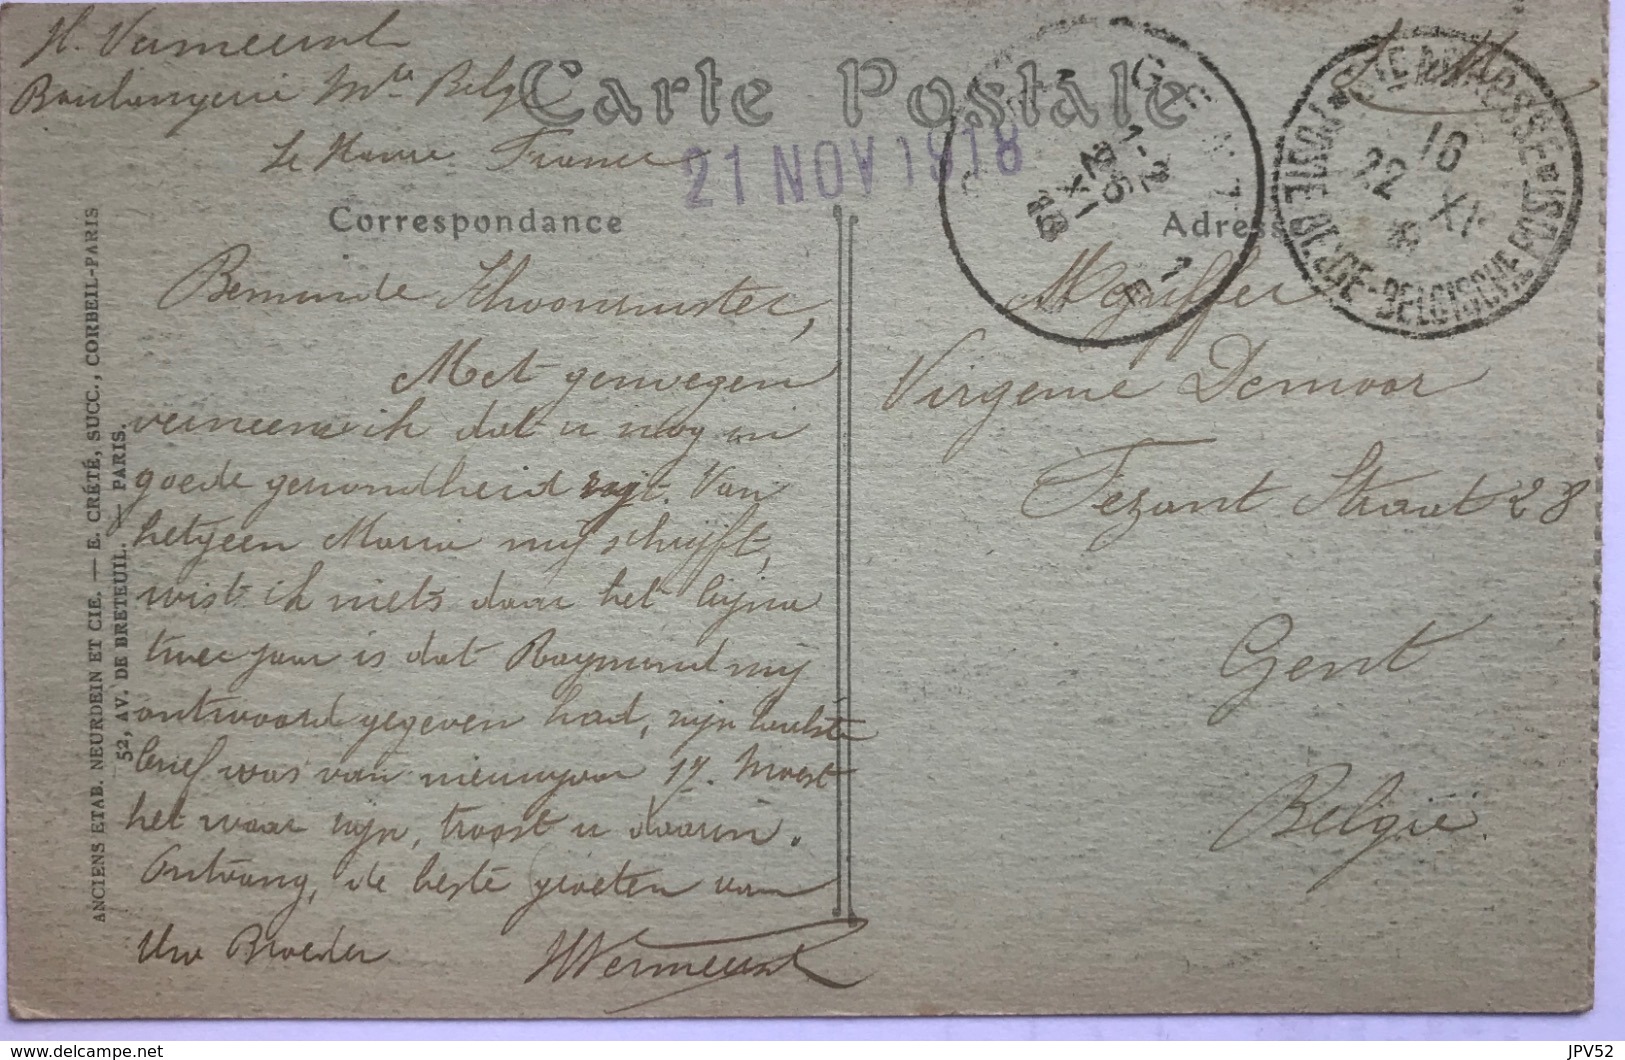 H. Vermeersch
Boulangerie Mre Belge
Le Havre France
S. M.
Carte Postale
21 NOV 1918
Correspondance
Adresse
STE ADRESSE
POSTE BELGE - BELGISCHE POST
16
22 XI
18
GENT
Beminde Schoonzuster,
Met genoegen
verneem ik dat u nog in
goede gezondheid zijt. Van
hetgeen Maria mij schrijft,
wist ik niets daar het bijna
twee jaar is dat Raymond mij
antwoord gegeven had, zijn laatste
brief was van nieuwjaar 17. Moest
het waar zijn, troost u daarin.
Ontvang, de beste groeten van
Uw Broeder
HVermeersch
Virgenie Demoor
Fezant Straat 28
Gent
België
ANCIENS ETAB. NEURDEIN ET CIE. — E. CRÉTÉ, SUCC., CORBEIL-PARIS
52, AV. DE BRETEUIL. — PARIS.
www.delcampe.net
JPV52